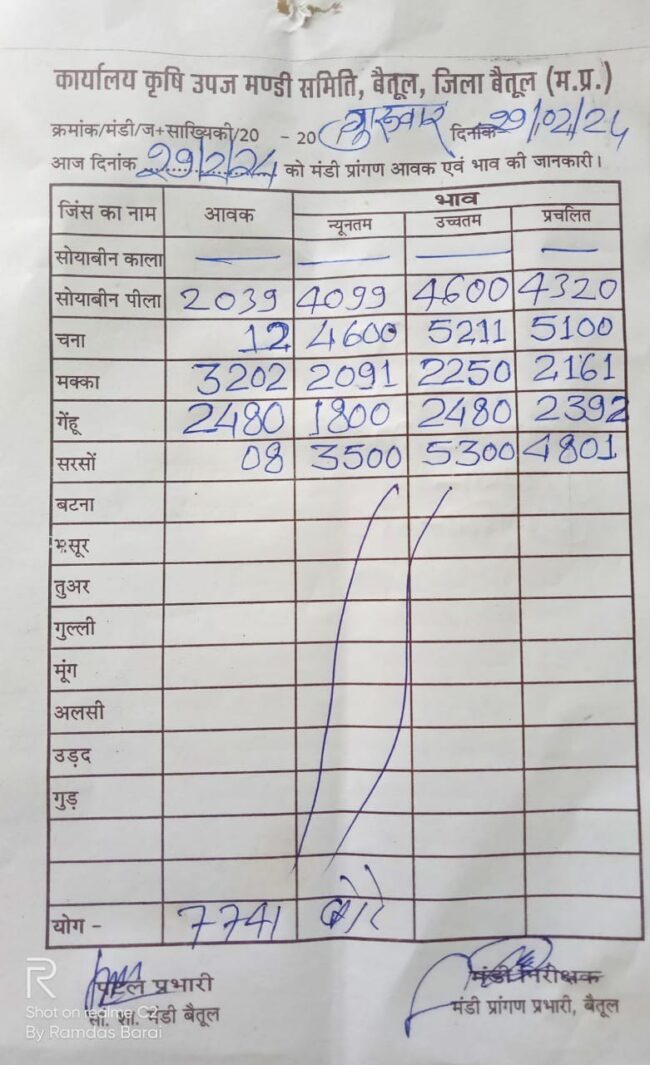 कार्यालय कृषि उपज मण्डी समिति, बैतूल, जिला बैतूल (म.प्र.)
क्रमांक/मंडी/ज+साख्यिकी/20 - 20 गुरुवार दिनांक 29/02/24
आज दिनांक 29/2/24 को मंडी प्रांगण आवक एवं भाव की जानकारी।
जिंस का नाम आवक भाव
न्यूनतम उच्चतम प्रचलित
सोयाबीन काला — — — —
सोयाबीन पीला 2039 4099 4600 4320
चना 12 4600 5211 5100
मक्का 3202 2091 2250 2161
गेंहू 2480 1800 2480 2392
सरसों 08 3500 5300 4801
बटना
मसूर
तुअर
गुल्ली
मूंग
अलसी
उड़द
गुड़
योग - 7741 बोरे
प्रभारी
सा. सा. मंडी बैतूल
मंडी निरीक्षक
मंडी प्रांगण प्रभारी, बैतूल
R
Shot on realme C2
By Ramdas Barai